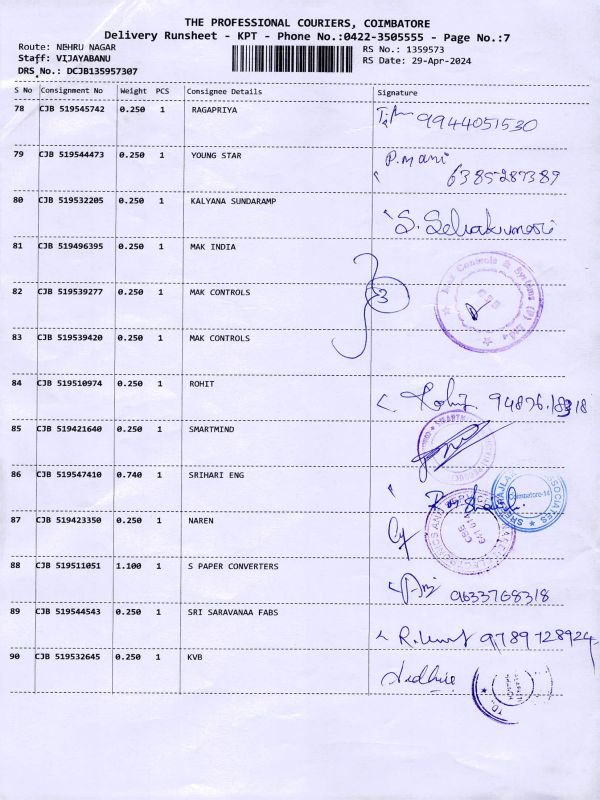 THE PROFESSIONAL COURIERS, COIMBATORE
Delivery Runsheet - KPT - Phone No.:0422-3505555 - Page No.:7
Route: NEHRU NAGAR
RS No.: 1359573
Staff: VIJAYABANU
RS Date: 29-Apr-2024
DRS No.: DCJB135957307
S No Consignment No Weight PCS Consignee Details Signature
78 CJB 519545742 0.250 1 RAGAPRIYA 9944051530
79 CJB 519544473 0.250 1 YOUNG STAR P.mani
6385287389
80 CJB 519532205 0.250 1 KALYANA SUNDARAMP S. Selvakumari
81 CJB 519496395 0.250 1 MAK INDIA
82 CJB 519539277 0.250 1 MAK CONTROLS 3
Controls & Systems (P) Ltd
83 CJB 519539420 0.250 1 MAK CONTROLS
84 CJB 519510974 0.250 1 ROHIT Rohit
85 CJB 519421640 0.250 1 SMARTMIND
86 CJB 519547410 0.740 1 SRIHARI ENG
Coimbatore-14
87 CJB 519423350 0.250 1 NAREN
88 CJB 519511051 1.100 1 S PAPER CONVERTERS 9633768318
89 CJB 519544543 0.250 1 SRI SARAVANAA FABS 9789728924
90 CJB 519532645 0.250 1 KVB